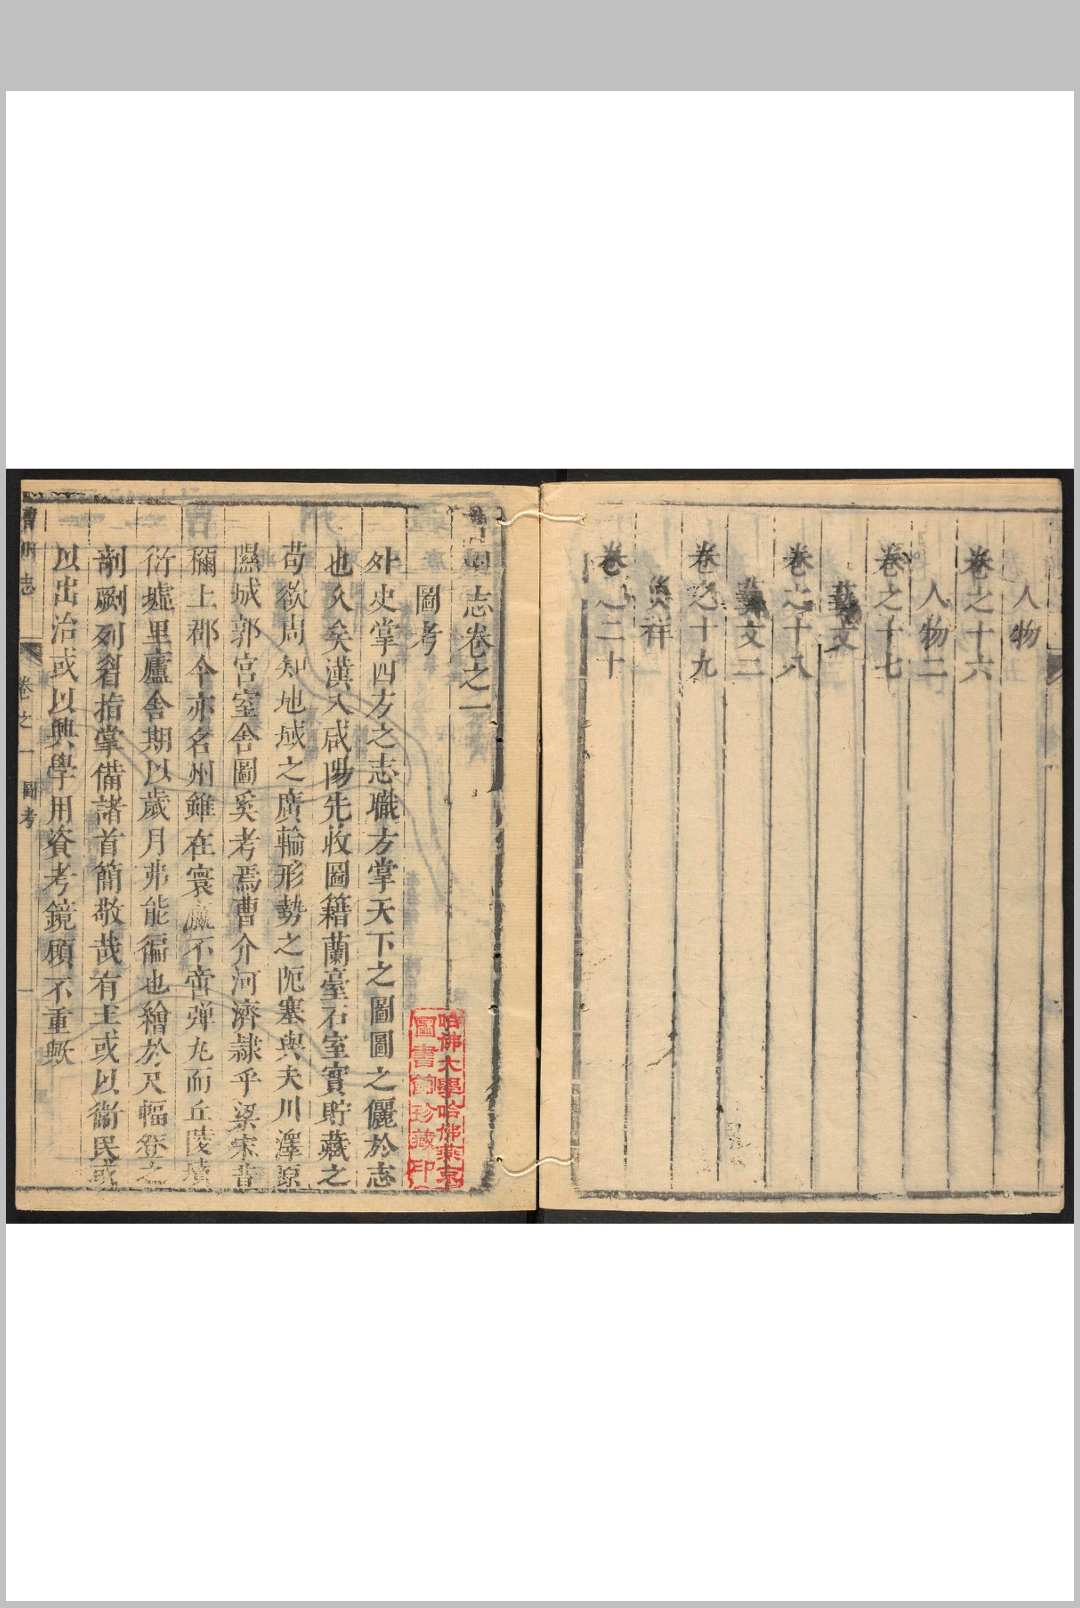 人物
卷之十六
人物二
卷之十七
藝文
卷之十八
藝文二
卷之十九
祥
卷 二十
曹州志卷之一
圖考
外史掌四方之志職方掌天下之圖圖之儷於志
也久矣漢入咸陽先收圖籍蘭臺石室實貯藏之
苟欲周知地域之廣輪形勢之阨塞與夫川澤原
隰城郭宮室舍圖奚考焉曹介河濟隷乎梁宋昔
稱上郡今亦名州雖在寰瀛不啻彈丸而丘陵墳
衍墟里廬舍期以歲月弗能徧也繪於尺幅登之
剞劂列眉指掌備諸首簡敬哉有土或以衞民或
以出治或以興學用資考鏡顧不重歟
曹州志
卷之一
圖考
一
哈佛大學哈佛燕京
圖書館珍藏印